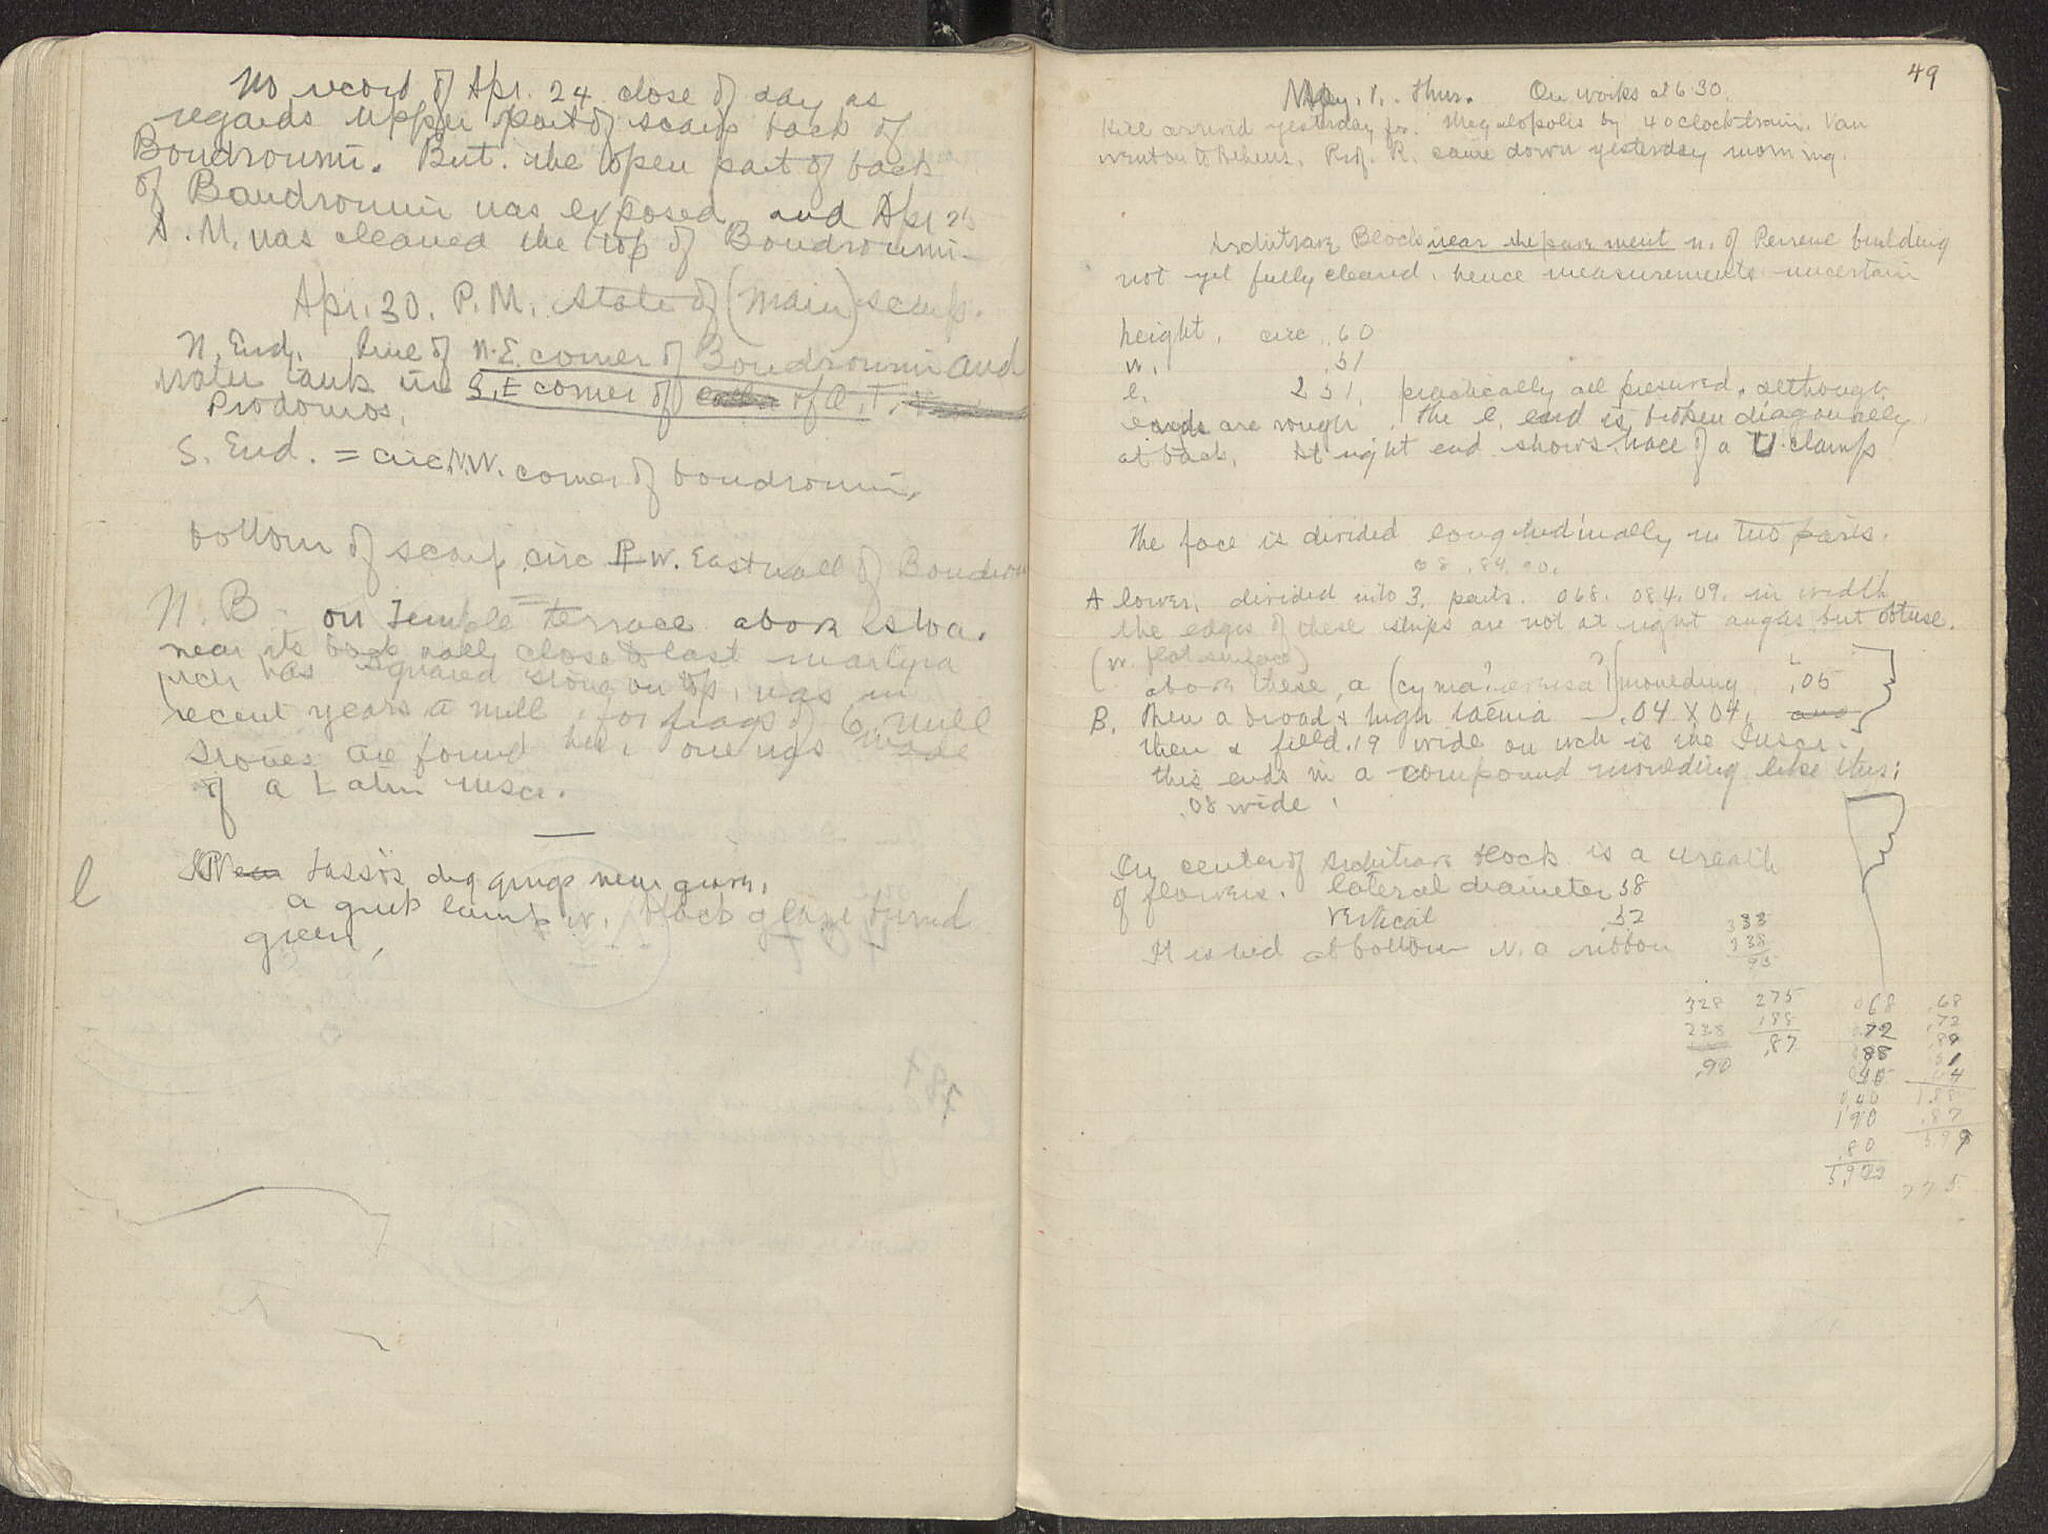 No record of Apr. 24 close of day as
regards upper part of scarp back of
Boudroumi. But the open part of back
of Boudroumi was exposed and Apr 25
A.M. was cleaned the top of Boudroumi.
Apr. 30. P.M. State of (main) scarp.
N. End. line of N.E. corner of Boudroumi and
water tank in S.E corner of of A. T.
Prodomos.
S. End. = circ N.W. corner of boudroumi.
bottom of scarp circ W. East wall of Boudrou
N. B. on Temple terrace above stoa.
near its back wall, close to last martyra
wch has squared stone on top, was in
recent years a mill, for frags of 6 mill
stones are found here, one was made
of a Latin inscr.
l
Tassos dig gings near guva.
a greek lamp w. black glaze turned
green,
49
May. 1. Thur. On works at 6 30.
Hill arrived yesterday fr. Megalopolis by 4 oclock train. Van
went on to Athens. Prof. R. came down yesterday morning.
Architrave Block near the pavement n. of Peirene building
not yet fully cleared, hence measurements uncertain
height, circ .60
w. .51
l. 2 51. practically all preserved, although
ends are rough. The l. end is broken diagonally
at back. At right end shows trace of a U clamp
The face is divided longitudinally in two parts.
08 .84 .90.
A lower, divided into 3. parts. 068. 084. 09. in width
the edges of these strips are not at right angles but obtuse.
(w. flat surface)
above these, a (cyma? reversa?) moulding .05
B. Then a broad & high taenia .04 X 04.
then a field .19 wide on wch is the Inscr.
this ends in a compound moulding like this:
.08 wide.
In center of Architrave block is a wreath
of flowers. lateral diameter 38
vertical .32
It is tied at bottom w. a ribbon
338
238
95
328 275 068 .68
238 188 .72 .72
.90 .87 88
040
190
.80
.87
775